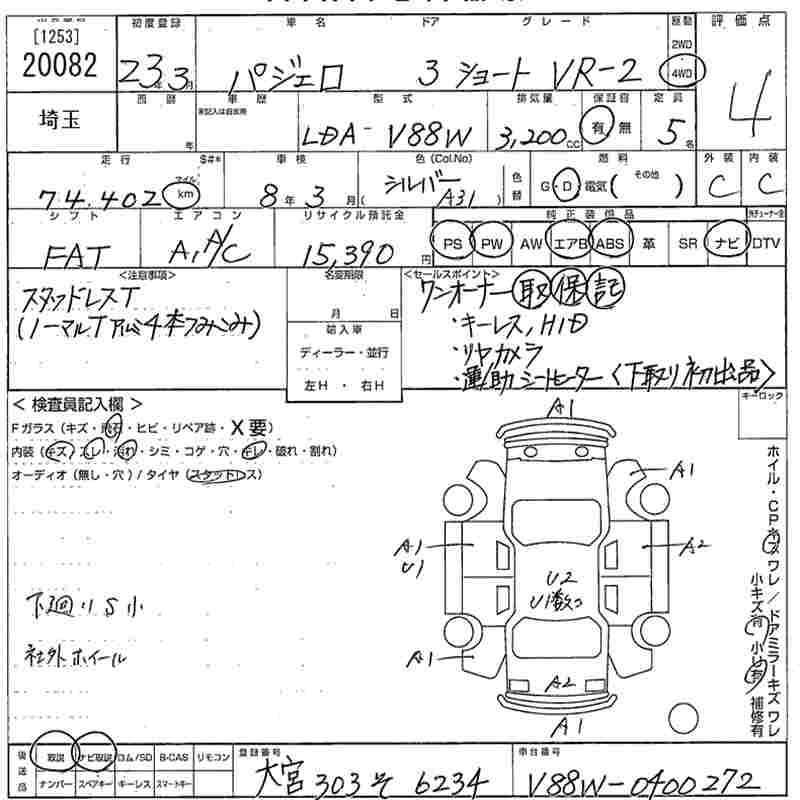 [1253]
20082
初度登録 車名 ドア グレード 駆動 評価点
23年3月 パジェロ 3 ショート VR-2 2WD 4WD 4
埼玉
西暦 年 車歴 型式 排気量 保証書 定員
LDA- V88W 3,200cc 有 無 5名
走行 車検 色(Col.No) 色替 燃料 外装 内装
74,402 マイル km 8年3月 (シルバー A31) G・D・電気(その他) C C
シフト エアコン リサイクル預託金 純正装備品
FAT A,A/C 15,390円 PS PW AW エアB ABS 革 SR ナビ DTV
<注意事項>
スタッドレスT
(ノーマルTアルミ4本つみこみ)
名変期限
月 日
輸入車
ディーラー・並行
左H・右H
<セールスポイント>
ワンオーナー 取 保 記
・キーレス, HID
・リヤカメラ
・運助シートヒーター〈下取り初出品〉
キーロック
<検査員記入欄>
Fガラス(キズ・飛石・ヒビ・リペア跡・X要)
内装(キズ・スレ・汚れ・シミ・コゲ・穴・キレ・破れ・割れ)
オーディオ(無し・穴)/タイヤ(スタットレス)
下廻りS小
社外ホイール
A1
A1
A1
U1
A2
U2
U1数コ
A1
A2
A1
ホイル・CPキズワレ/ドアミラーキズワレ
小キズ有 小凹有 補修有
後送品 取説 ナビ取説 ロム/SD B-CAS リモコン
ナンバー スペアキー キーレス スマートキー
登録番号
大宮 303 そ 6234
車台番号
V88W-0400272